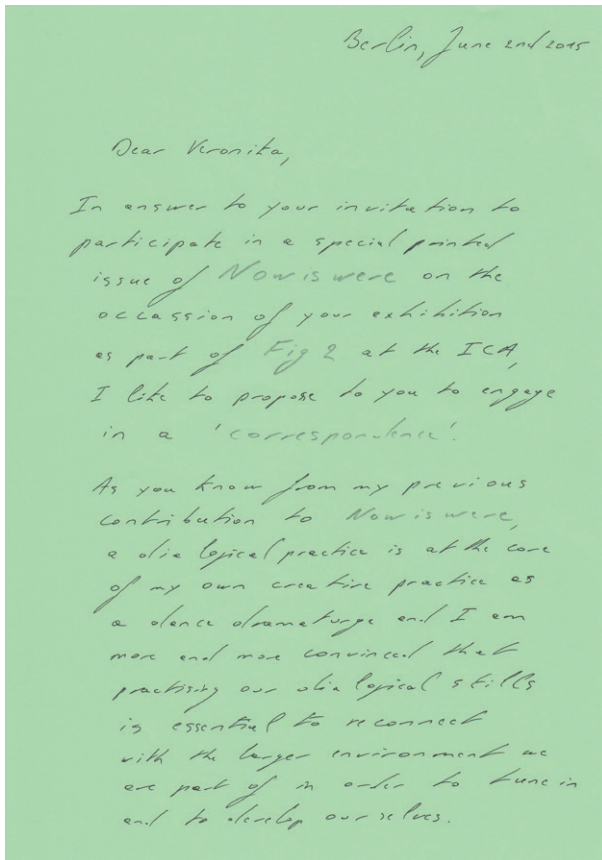 Berlin, June 2nd 2015
Dear Veronika,
In answer to your invitation to
participate in a special printed
issue of Now is were on the
occassion of your exhibition
as part of Fig 2 at the ICA,
I like to propose to you to engage
in a 'correspondence'.
As you know from my previous
contribution to Now is were,
a dialogical practice is at the core
of my own creative practice as
a dance dramaturge and I am
more and more convinced that
practising our dialogical skills
is essential to reconnect
with the larger environment we
are part of in order to tune in
and to develop ourselves.